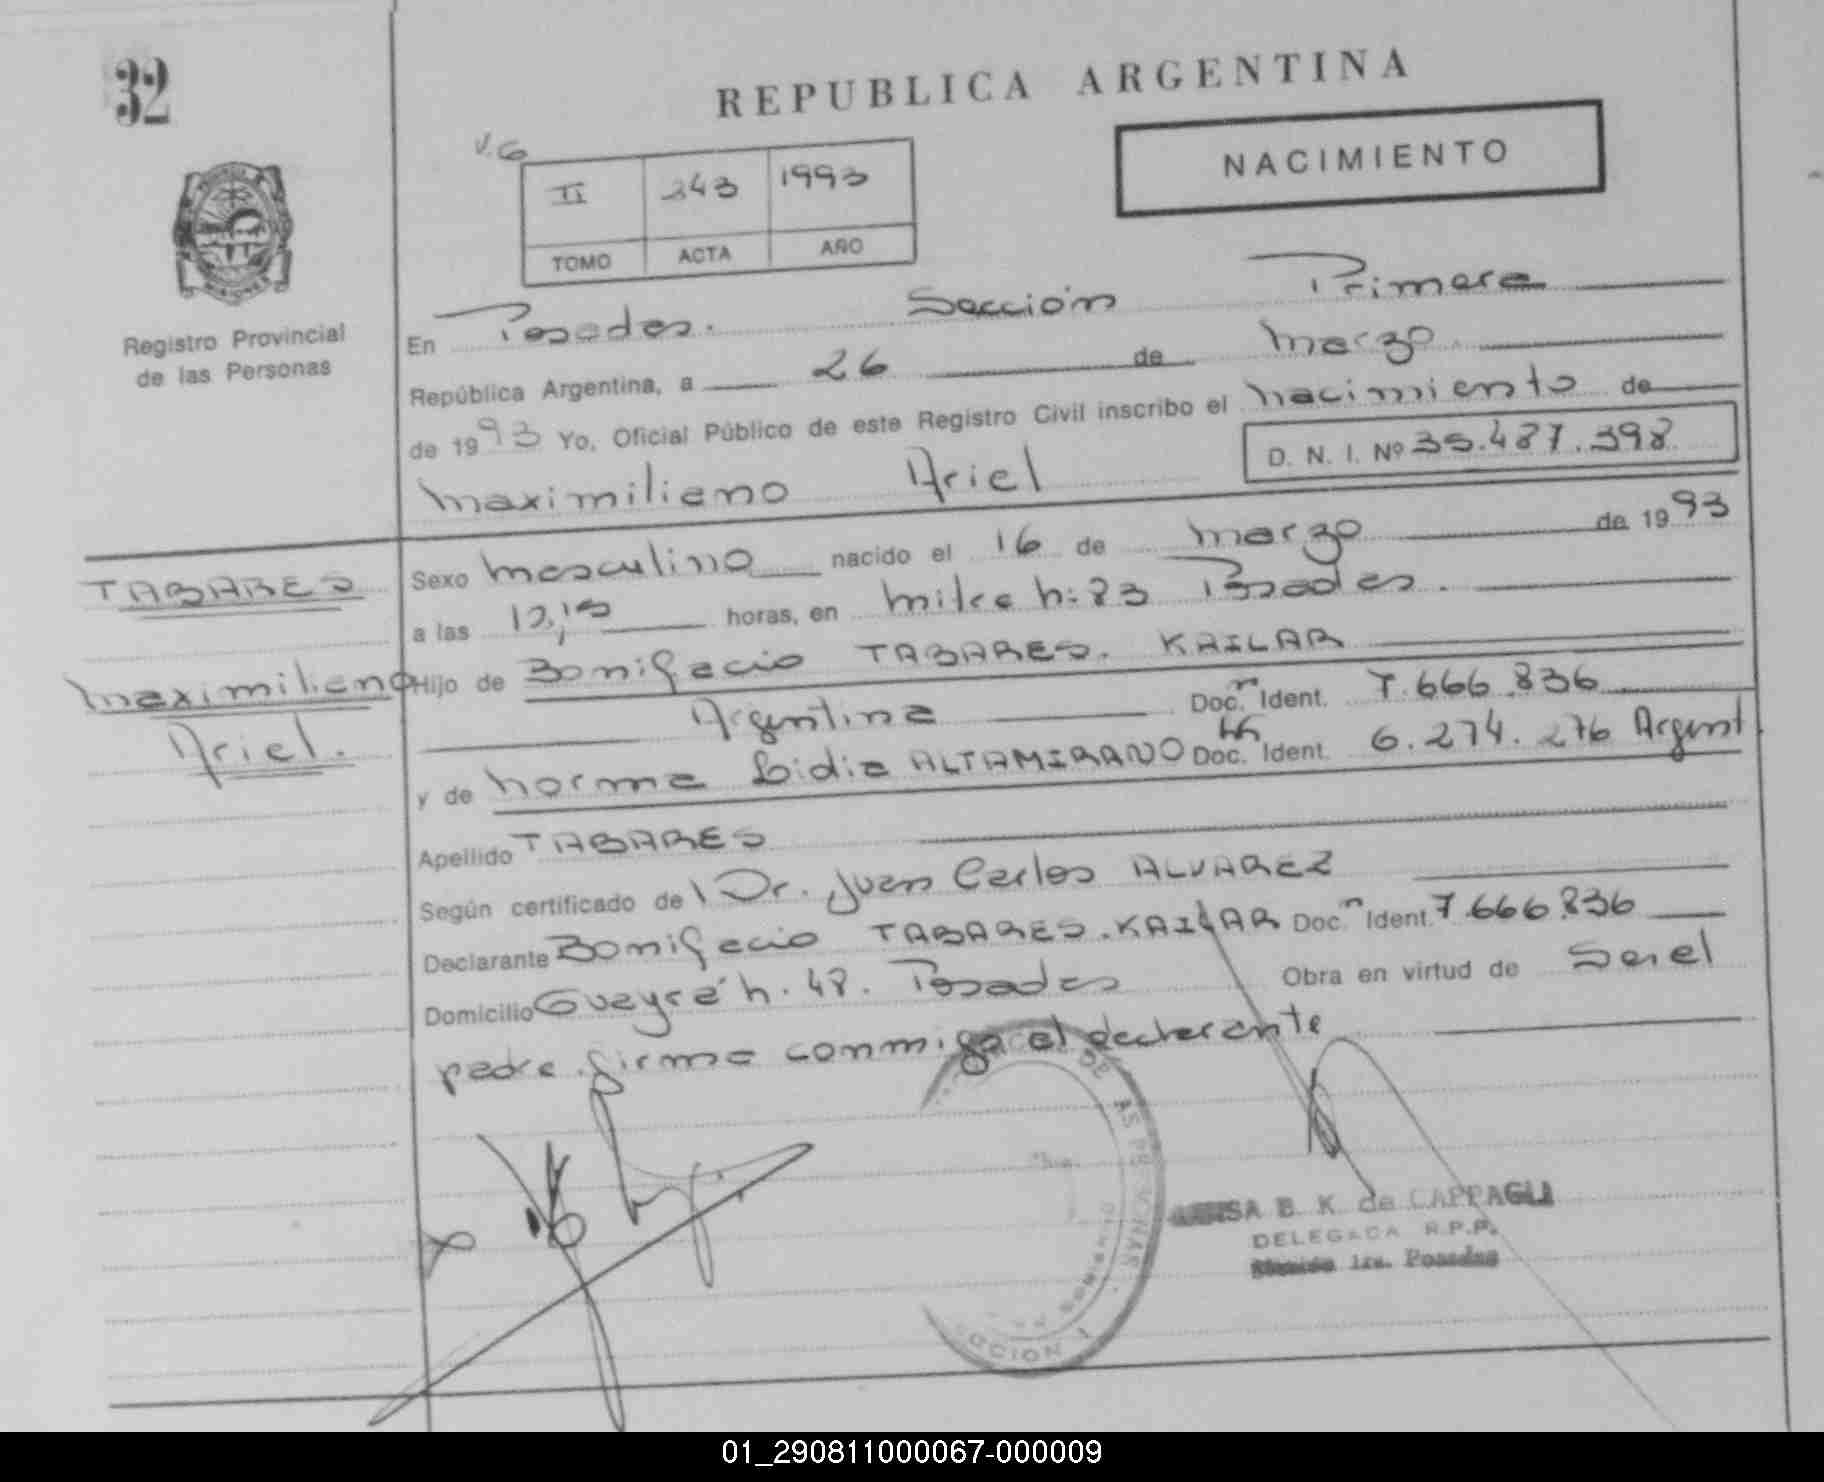 32
REPUBLICA ARGENTINA
NACIMIENTO
V.G
II 243 1993
TOMO ACTA AÑO
MISIONES
Registro Provincial
de las Personas
En Posadas. Sección Primera
República Argentina, a 26 de Marzo
de 1993 Yo, Oficial Público de este Registro Civil inscribo el nacimiento de
D. N. I. Nº 35.487.398
Maximiliano Ariel
Sexo Masculino nacido el 16 de Marzo de 1993
a las 12,15 horas, en Mitre n: 83 Posadas.
Hijo de Bonifacio TABARES. KAILAR
Argentina Doc. n Ident. 7.666.836
y de Norma Lidia ALTAMIRANO Doc. Ident. 6.274.276 Argent
Apellido TABARES
Según certificado de l Dr. Juan Carlos ALVAREZ
Declarante Bonifacio TABARES. KAILAR Doc. n Ident. 7.666.836
Domicilio Guayrá n. 48. Posadas Obra en virtud de Ser el
padre. firma conmigo el declarante
TABARES
Maximiliano
Ariel.
DE AS PERSONAS
MISIONES
CCION 1
B. K. de CAPPAGLI
DELEGADA R.P.P.
1ra. Posadas
01_290811000067-000009